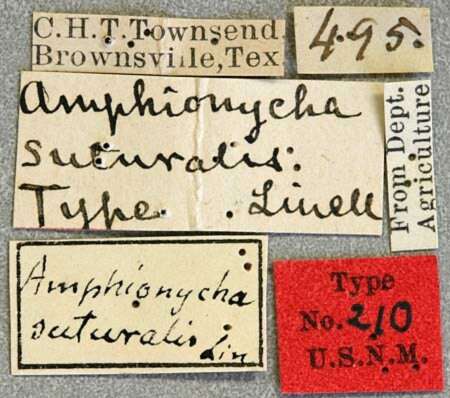 C.H.T. Townsend,
Brownsville, Tex
495.
Amphionycha
suturalis.
Type. Linell
From Dept.
Agriculture
Amphionycha
suturalis
Lin
Type
No. 210
U.S.N.M.